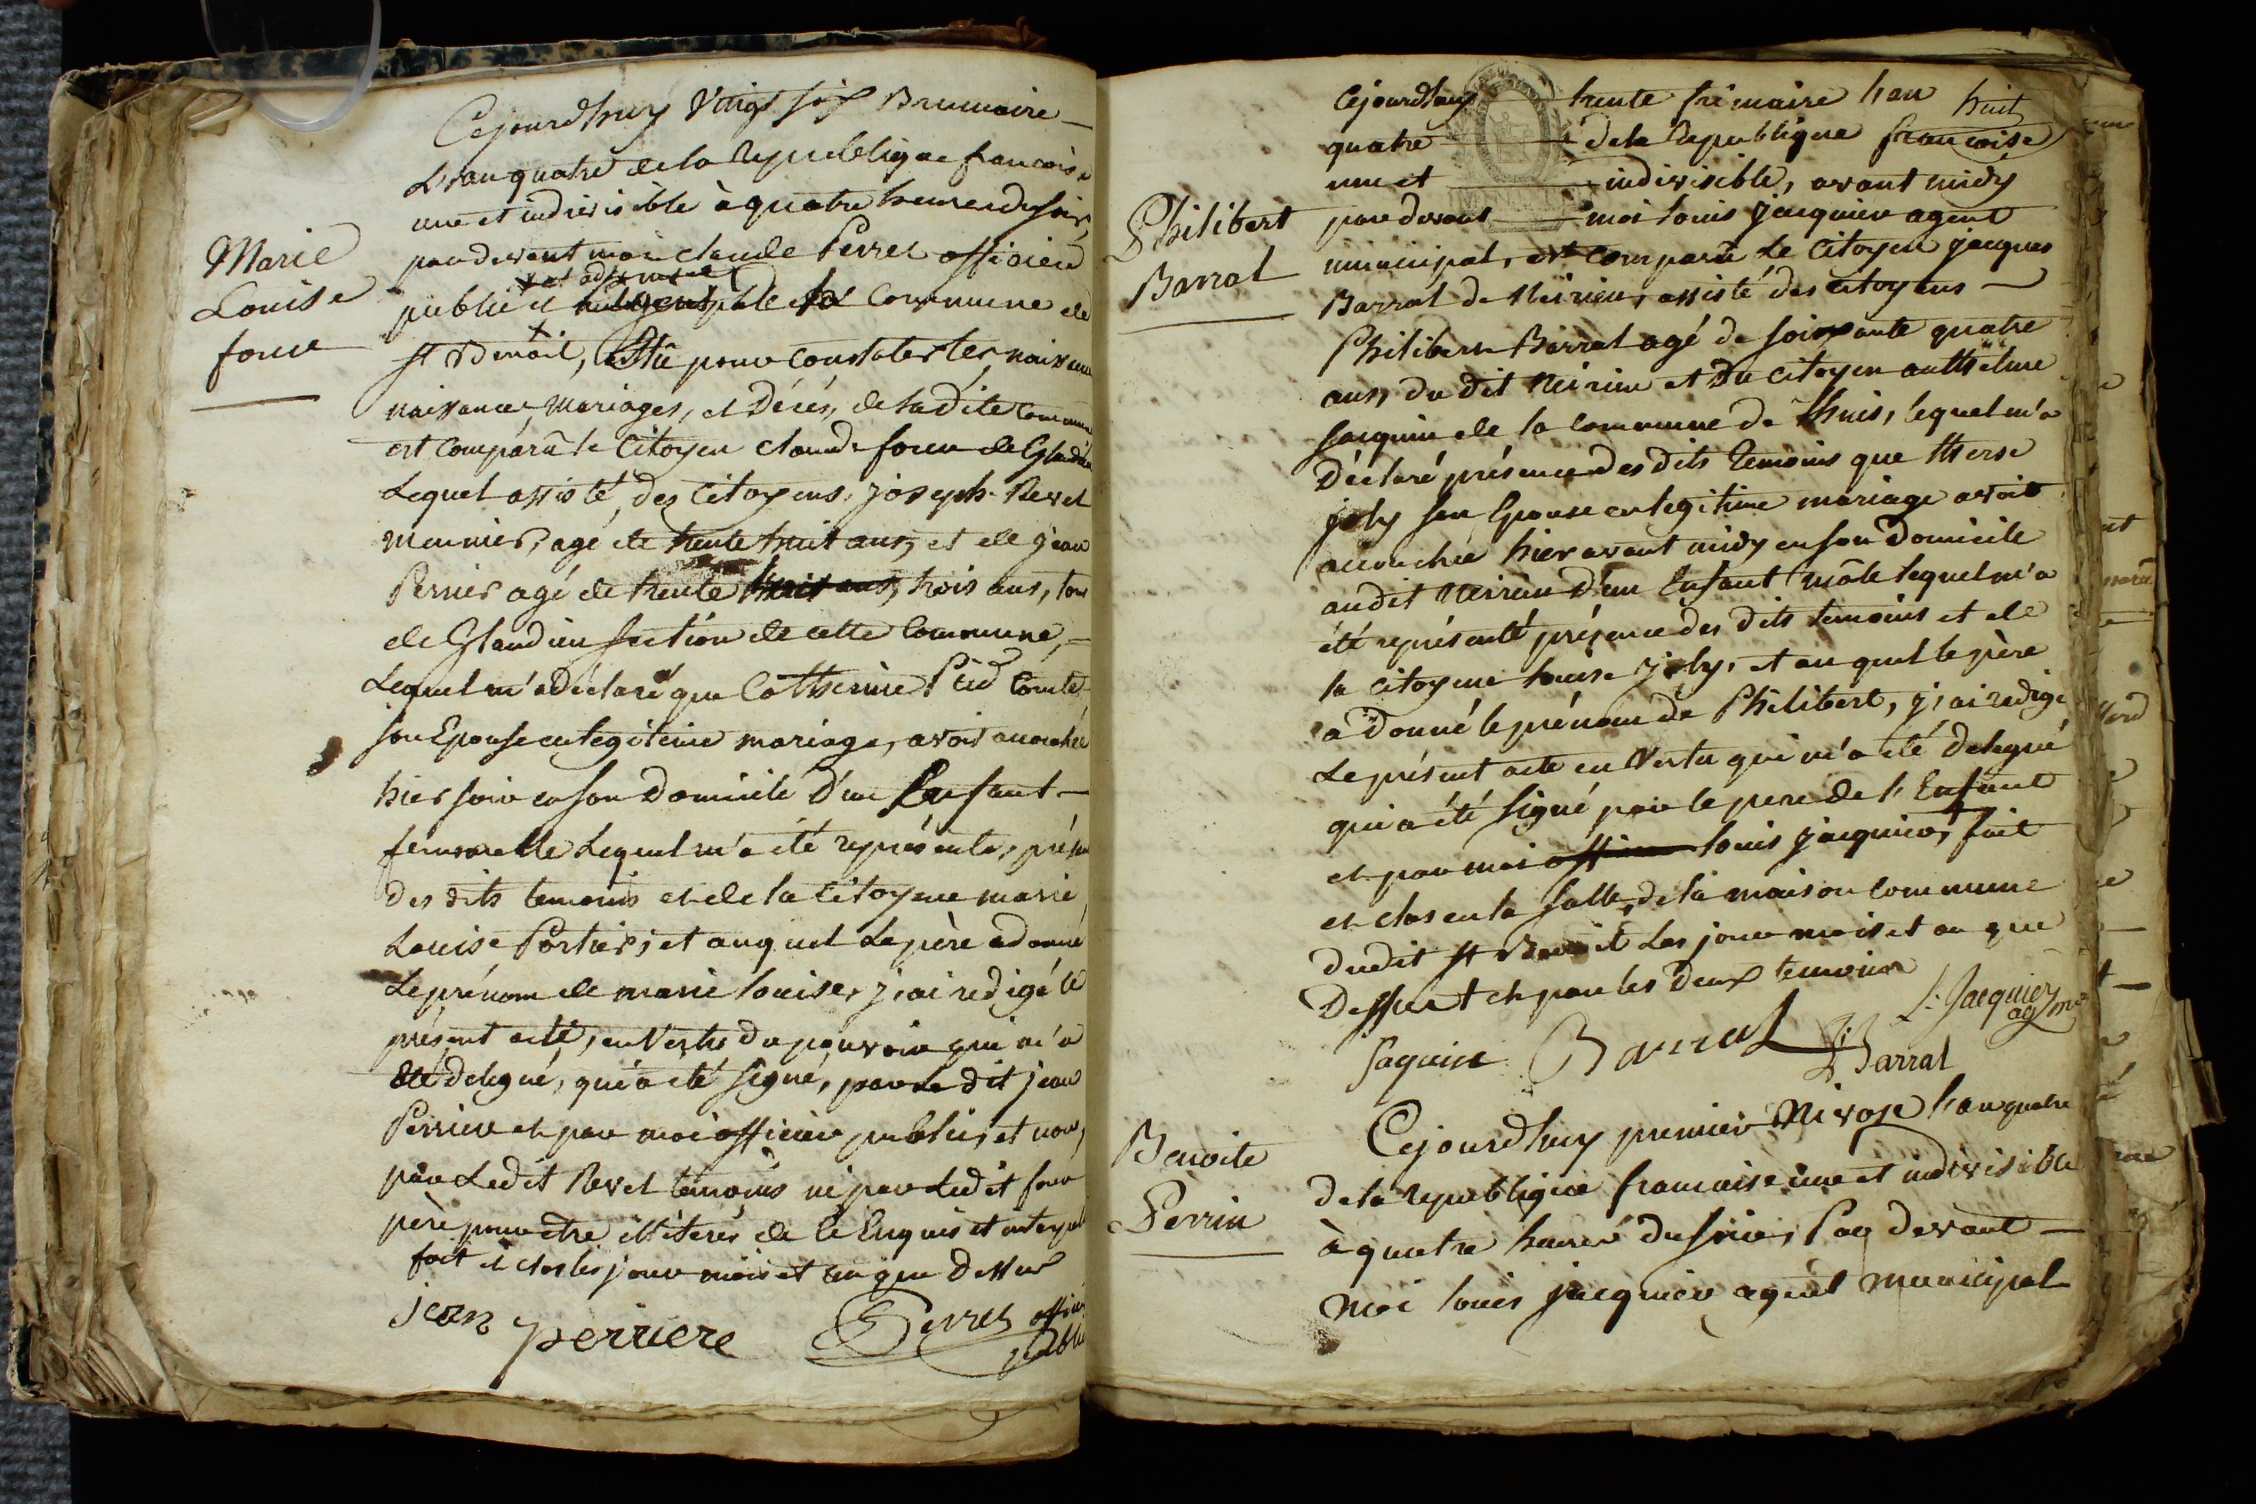 Marie
Louise
four
Cejourdhuy vingt six Brumaire
L'an quatre de la Republique francoise
une et indivisible à quatre heures du soir,
par devant moi claude Perret officier
public et de la Commune de
st Benoit, Elû pour constater les naissances
naissances, mariages, et Décés, de la dite Commune
est comparû le Citoyen claude four de Glandieu
Lequel assisté, des Citoyens, joseph Revel
meunier, agé de trente huit ans, et de jean
Perrier agé de trente huit ans, trois ans, tous
de Glandieu section de cette Commune,
Lequel m'a Déclaré que Catherine
son Epouse en legitime mariage, avoit accouchée
hier soir en son Domicile D'un Enfant
femmelle Lequel m'a été représenté, présence
des dits temoins et de la Citoyene marie
Louise Portier, et auquel Le père a donné
Le prénom de marie Louise, j'ai redigé le
présent acte, en Vertu du pouvoir qui m'a
été delegué, qui a été signé, par Le dit jean
Perriere et par moi officier public, et non,
par Ledit Revel temoins ni par Ledit four
père pour etre illiterés de ce Enquis et interpelés
fait et clos les jour mois et an que dessus
jean perriere Perret officier
public
Philibert
Barral
Cejourdhuy trente frimaire l'an
huit
quatre de la Republique francoise
une et indivisible, avant midy
par devant moi Louis jacquier agent
municipal, est comparû Le Citoyen jacques
Barral de Neirieu, assisté des citoyens
Philibert Barral agé de soixante quatre
ans, du dit Neirieu et Du Citoyen anthelme
jacquin de la Commune de Thuis, lequel m'a
Déclaré présence des dits temoins que therse
joly son Epouse en legitime mariage avoit
accouchée hier avant midy en son Domicile
audit Neirieu D'un Enfant mâle lequel m'a
été représenté présence des dits temoins et de
la citoyene Louise joly, et au quel le père
a Donné le prénom de Philibert, j'ai redigé
Le présent acte en Vertu qui m'a été delegué
qui a été signé par le pere de l'Enfant
et par moi Louis jacquier, fait
et clos en la salle, de la maison Commune
dudit st Benoit Les jour mois et an que
Dessus + et par les Deux temoins
Jaquin Barral Barral L. Jacquier
ag m
Benoite
Perrin
Cejourdhuy premier Nivose l'an quatre
de la Republique francoise une et indivisible
à quatre heures du soir, Par devant
moi Louis jacquier agent municipal